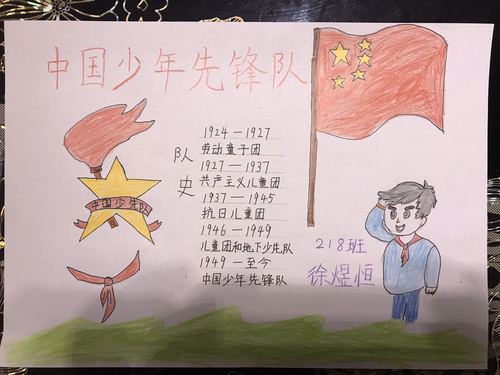 中国少年先锋队
队史
1924—1927
劳动童子团
1927—1937
共产主义儿童团
1937—1945
抗日儿童团
1946—1949
儿童团和地下少先队
1949—至今
中国少年先锋队
中国少先队
218班
徐煜恒